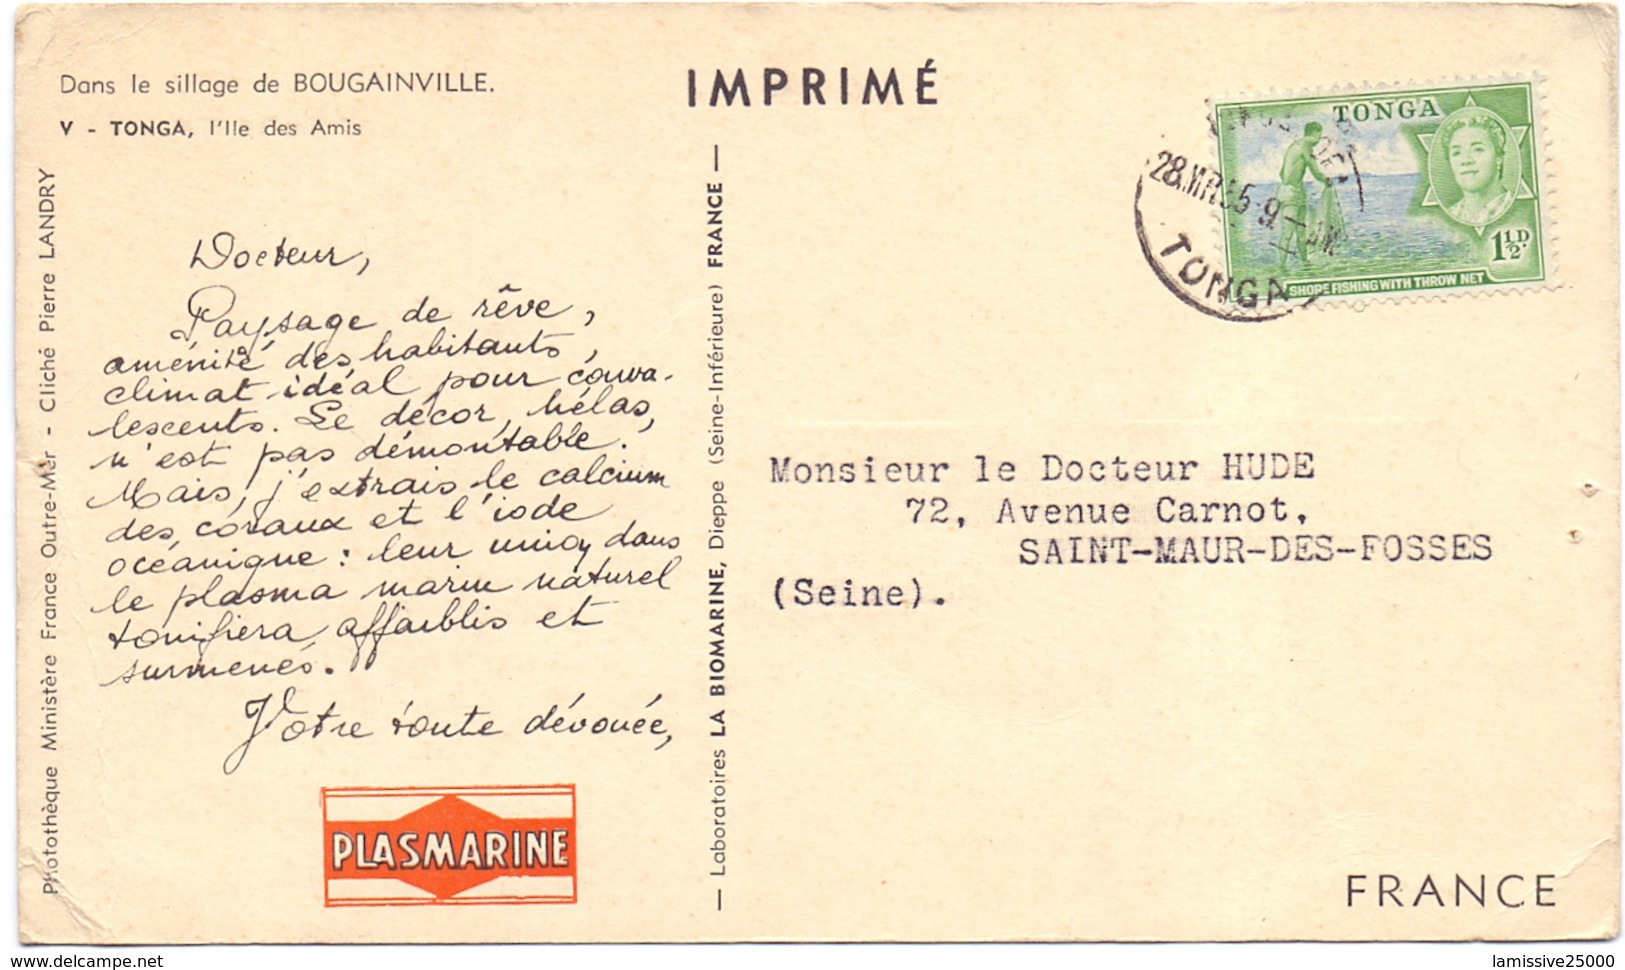 Dans le sillage de BOUGAINVILLE.
V - TONGA, l'Ile des Amis
IMPRIMÉ
TONGA
1½D.
SHOPE FISHING WITH THROW NET
28.MR.55·9-AM
TONGA
Photothèque Ministère France Outre-Mer - Cliché Pierre LANDRY
Docteur,
Paysage de rêve,
aménité des habitants,
climat idéal pour conva-
lescents. Le décor, hélas,
n'est pas démontable.
Mais, j'extrais le calcium
des coraux et l'iode
océanique : leur union dans
le plasma marin naturel
tonifiera affaiblis et
surmenés.
Votre toute dévouée,
PLASMARINE
— Laboratoires LA BIOMARINE, Dieppe (Seine-Inférieure) FRANCE —
Monsieur le Docteur HUDE
72, Avenue Carnot,
SAINT-MAUR-DES-FOSSES
(Seine).
FRANCE
delcampe.net
lamissive25000